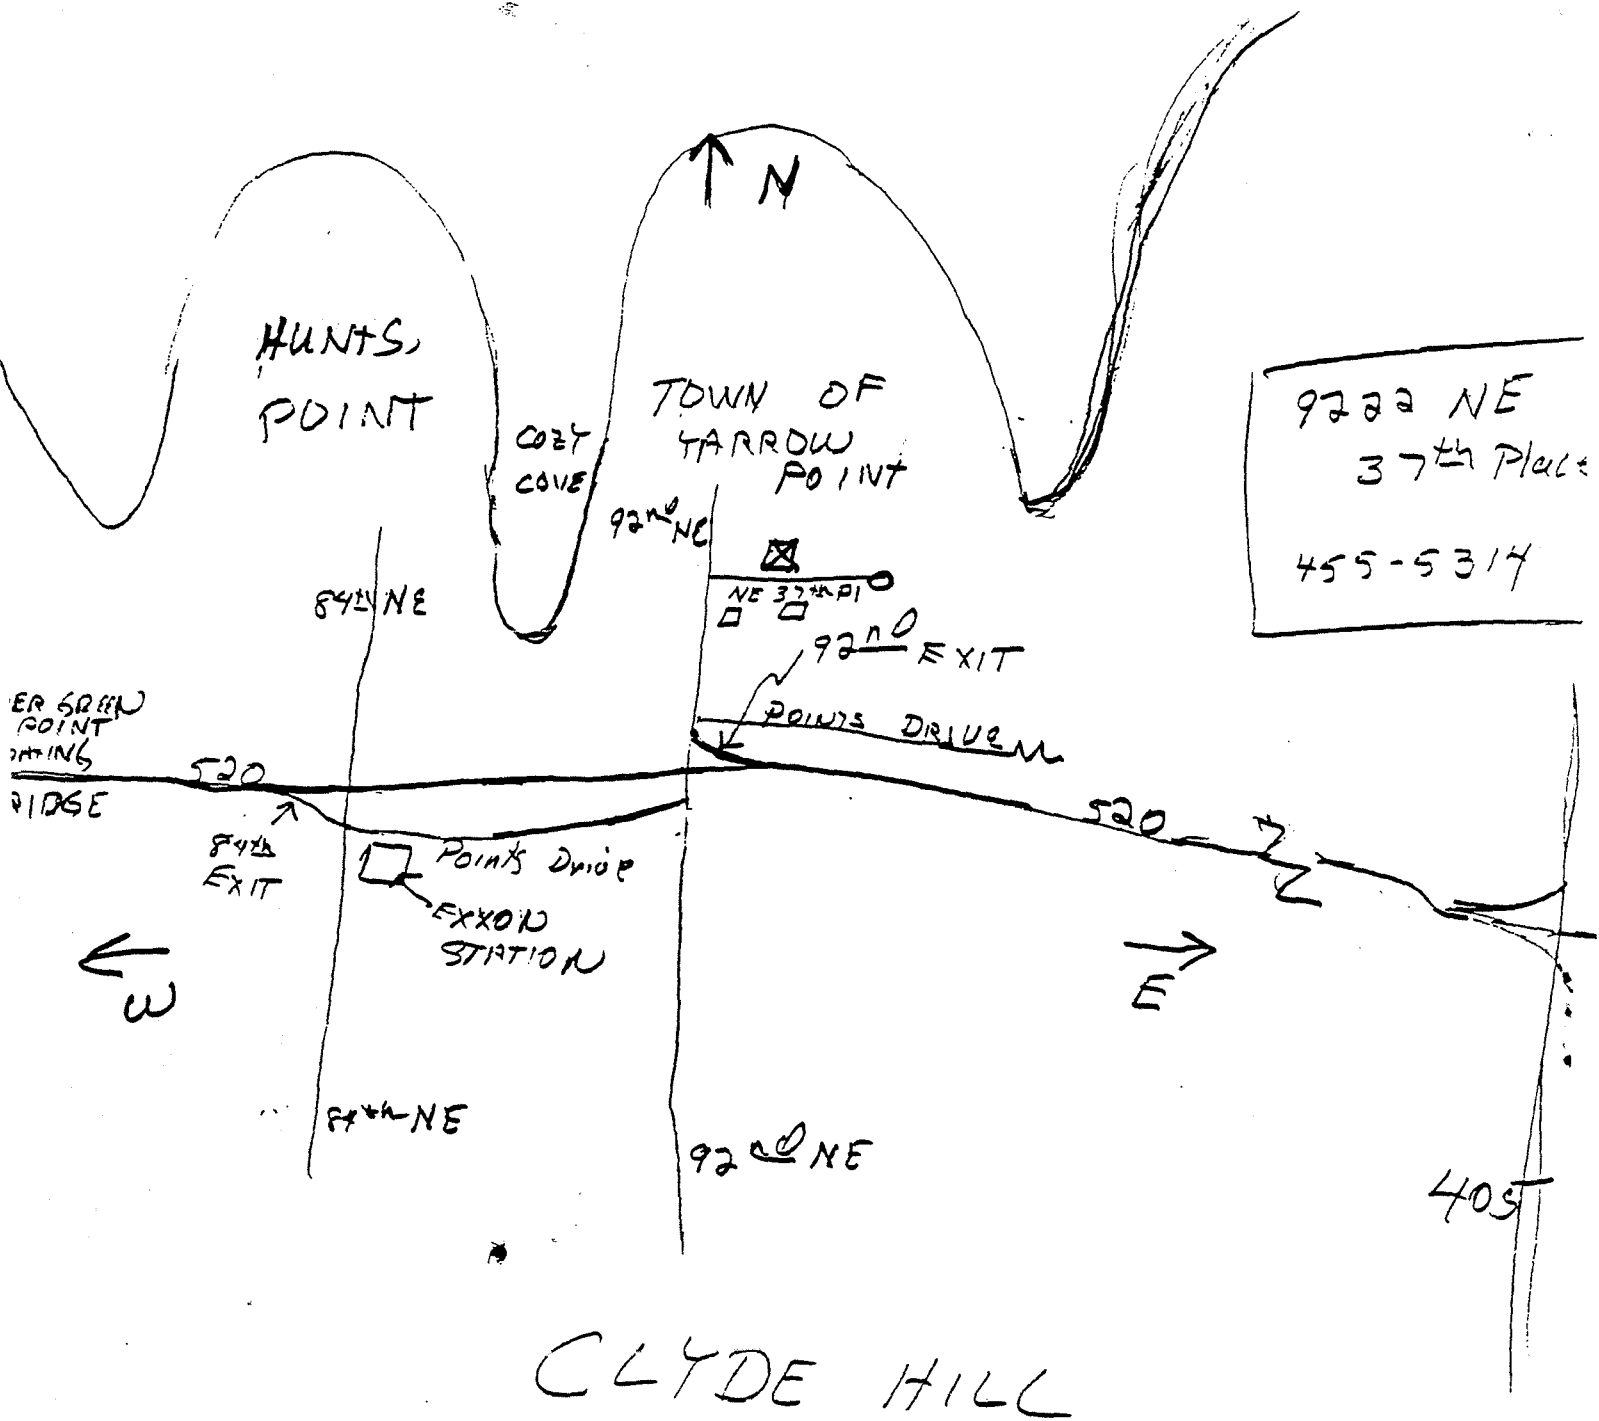 N
HUNTS
POINT
COZY
COVE
TOWN OF
YARROW
POINT
9222 NE
37th Place
455-5314
92nd NE
NE 37th Pl
84th NE
92nd EXIT
POINTS DRIVE
ER GREEN
POINT
OATING
RIDGE
520
84th
EXIT
Points Drive
EXXON
STATION
520
W
E
84th NE
92nd NE
405
CLYDE HILL